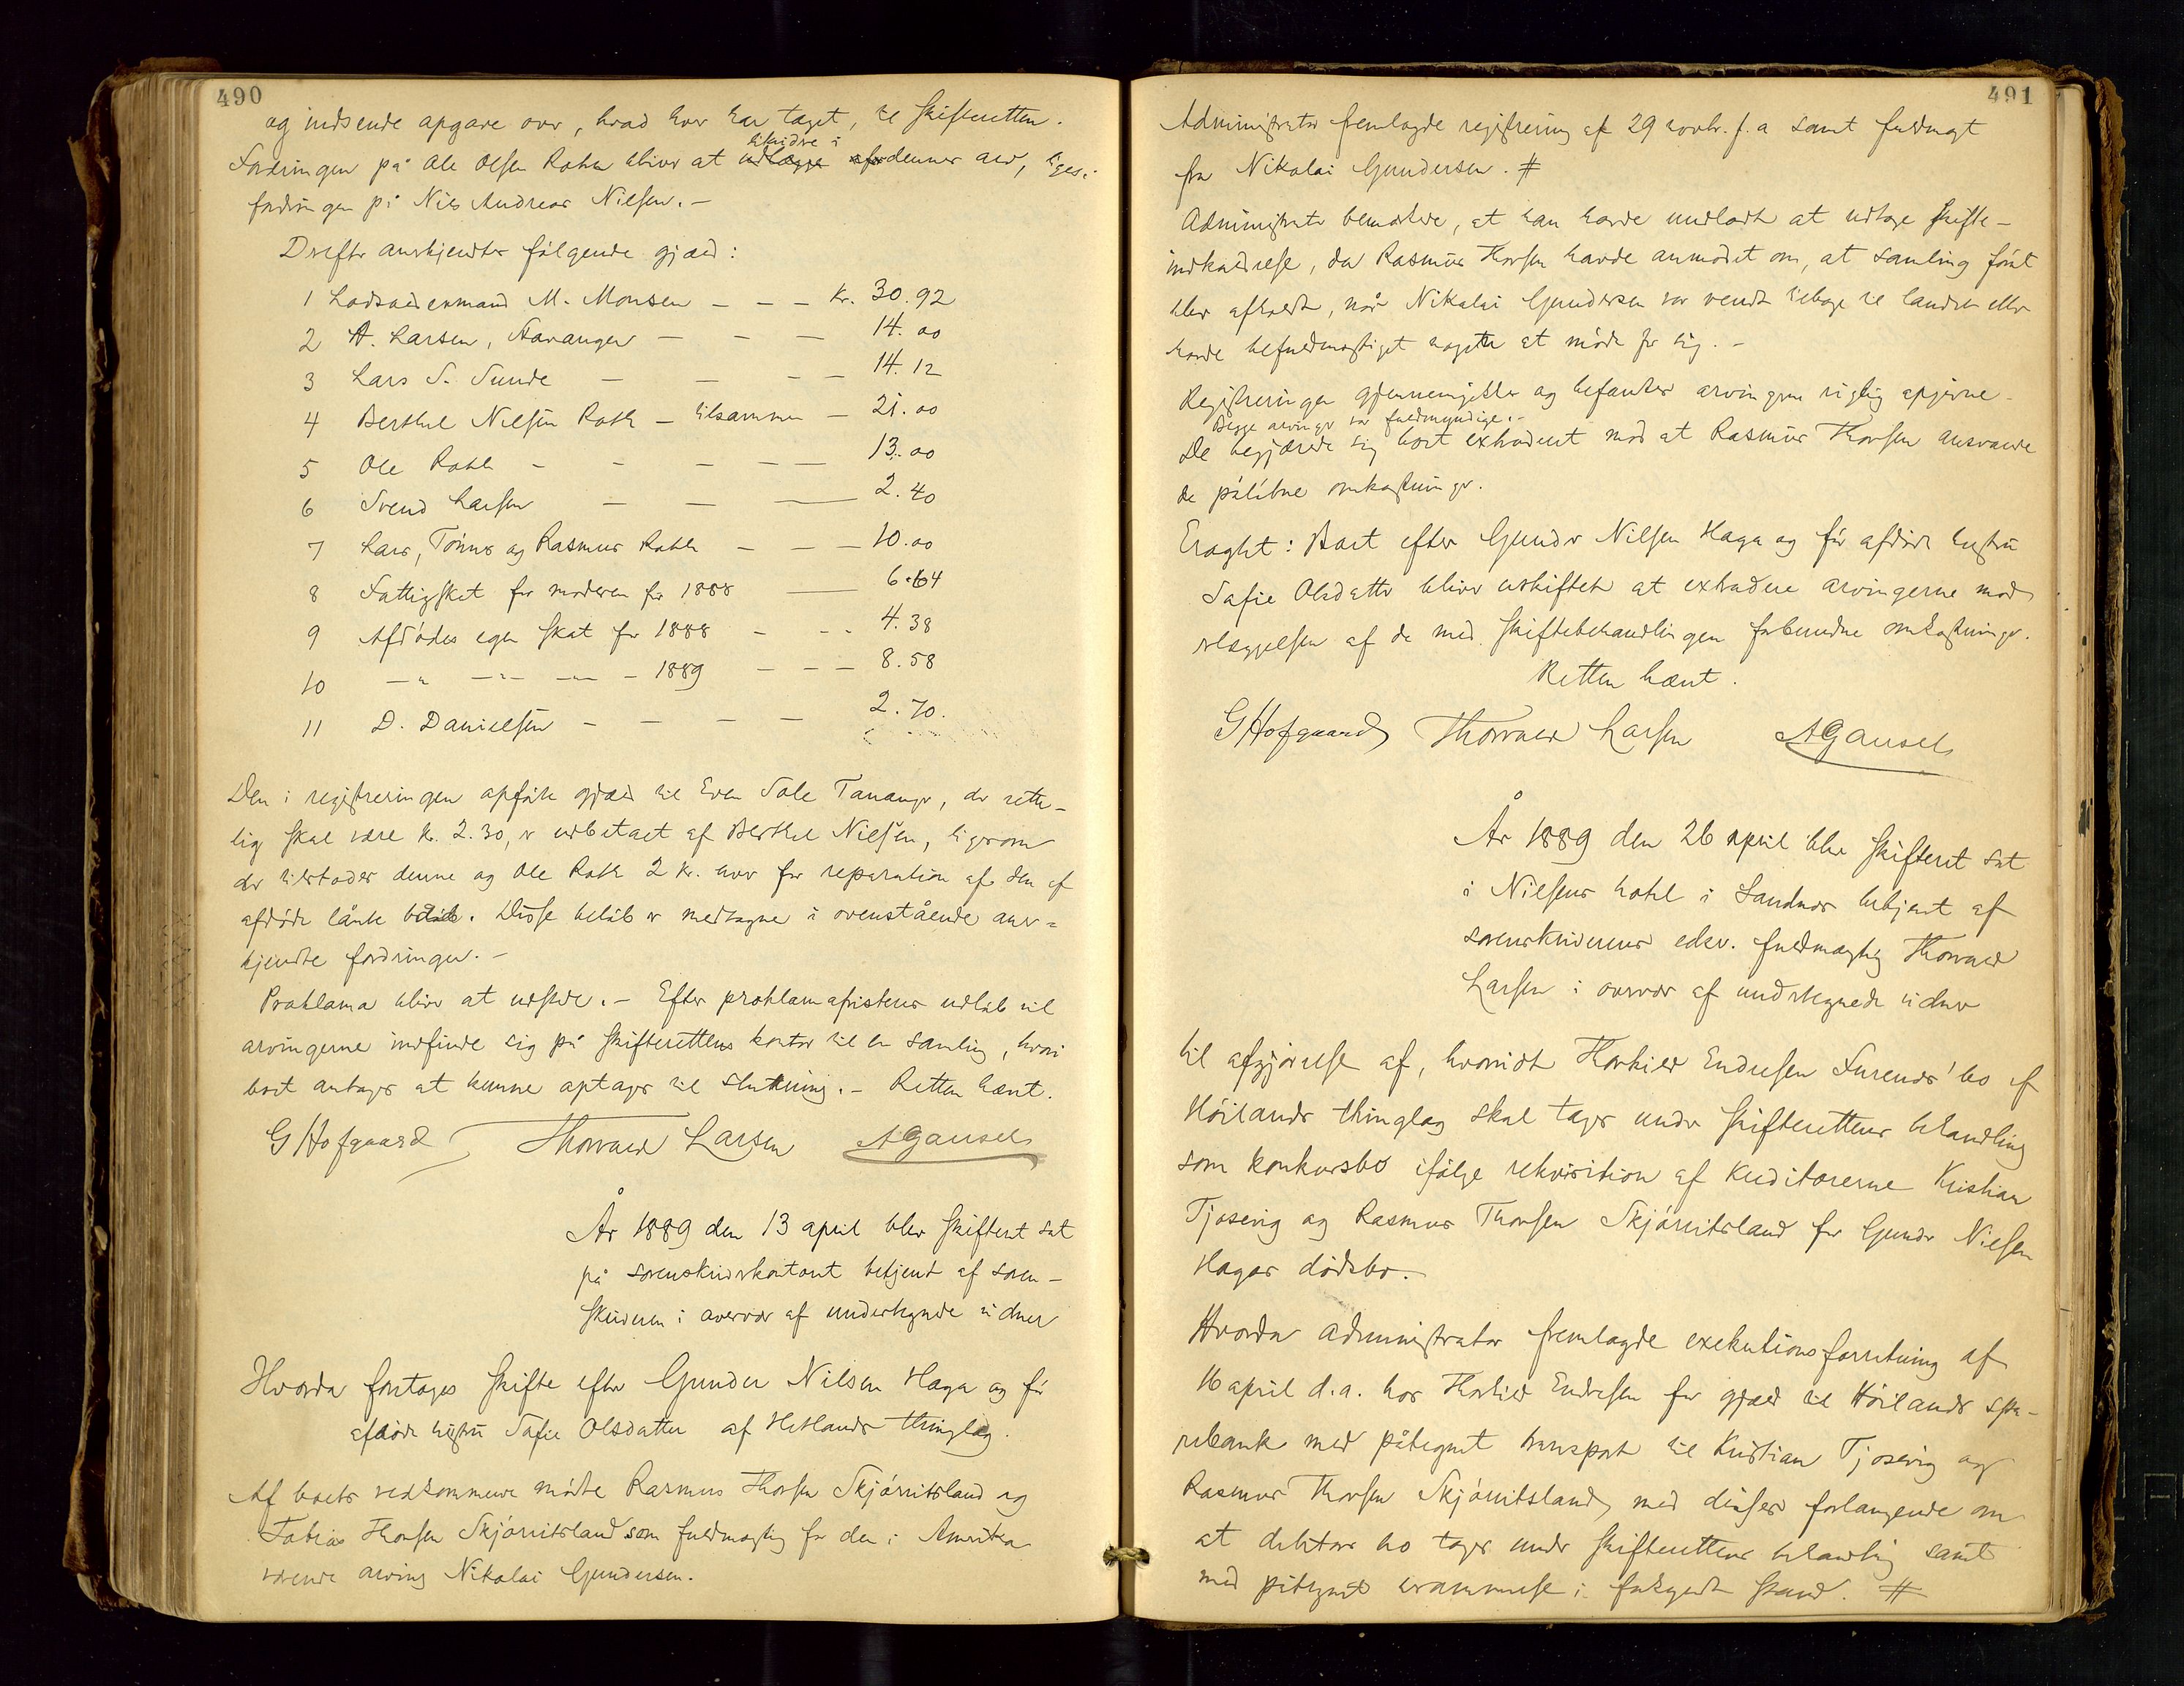 490
og indsende opgave over, hvad hver har taget, til skifteretten.
likvidere i
Fordringen på Ole Olsen Rathe bliver at udlægge afor dennes arv, liges.
fordringen på Nils Andreas Nielsen. –
Derefter anerkjendtes følgende gjæld:
1 Lodsoldermand M. Monsen – – – kr. 30.92
2 A. Larsen, Stavanger – – – 14.00
3 Lars S. Sunde – – – – 14.12
4 Berthel Nielsen Roth – tilsammen – 21.00
5 Ole Roth – – – – – 13.00
6 Svend Larsen – – – 2.40
7 Lars, Tønnes og Rasmus Rathe – – – 10.00
8 Fattigskat for moderen for 1888 – 6.64
9 Afdødes egen skat for 1888 – – – 4.38
10 – " – " – – 1889 – – – 8.58
11 D. Danielsen – – – – 2.70.
Den i registreringen opførte gjæld til Even Sole Tananger, der rette-
lig skal være kr. 2.30, er udbetalt af Berthel Nielsen, ligesom
der tilstodes denne og Ole Roth 2 kr. hver for reparation af den af
afdøde lånte båd. Disse beløb er medtagne i ovenstående aner=
kjendte fordringer. –
Proklama bliver at udstede. – Efter proklamafristens udløb vil
arvingerne indfinde sig på skifterettens kontor til en samling, hvori
boet antages at kunne optages til slutning. – Retten hævet.
G Hofgaard Thorvald Larsen A Gausel
År 1889 den 13 april blev skifteret sat
på sorenskriverkontoret betjent af soren-
skriveren i overvær af undertegnede vidner
Hvorda foretages skifte efter Gunder Nilsen Haga og før
afdøde hustru Tafie Olsdatter af Hetlands thinglag.
Af boets vedkommende mødte Rasmus Thorsen Skjørvitsland og
Tobias Thorsen Skjørvitsland som fuldmægtig for den i Amerika
værende arving Nikolai Gundersen.
491
Administrator fremlagde registrering af 29 novbr. f. a samt fuldmagt
fra Nikolai Gundersen. #
Administrator bemærkede, at han havde undladt at udtage skifte-
indkaldelse, da Rasmus Thorsen havde anmodet om, at samling først
blev afholdt, når Nikolai Gundersen var vendt tilbage til landet eller
havde befuldmægtiget nogen at møde for sig. –
Registreringen gjennemgikkes og befandtes arvingerne rigtig opgivne –
Begge arvinger var fuldmyndige. –
De begjærede sig boet extraderet mod at Rasmus Thorsen ansvarede
de påløbne omkostninger.
Eragtet: Boet efter Gunder Nilsen Haga og før afdøde hustru
Tafie Olsdatter bliver uskiftet at extradere arvingerne mod
erlæggelsen af de med skiftebehandlingen forbundne omkostninger.
Retten hævet.
G Hofgaard Thorvald Larsen A Gausel
År 1889 den 26 april blev skifteret sat
i Nielsens hotel i Sandnes betjent af
sorenskriverens edsv. fuldmægtig Thorvald
Larsen i overvær af undertegnede vidner
til afgjørelse af, hvorvidt Thorkild Endresen Furenes' bo af
Høilands thinglag skal tages under skifterettens behandling
som konkursbo ifølge rekvisition af kreditorerne Kristian
Tjosevig og Rasmus Thorsen Skjørvitsland for Gunder Nielsen
Hagas dødsbo.
Hvorda administrator fremlagde exekutionsforretning af
16 april d.a. hos Thorkild Endresen for gjæld til Høilands spa-
rebank med påtegnet transport til Kristian Tjosevig og
Rasmus Thorsen Skjørvitsland, med disses forlangende om
at debitors bo tages under skifterettens behandling samt
med påtegnet berammelse i forkyndt stand. #